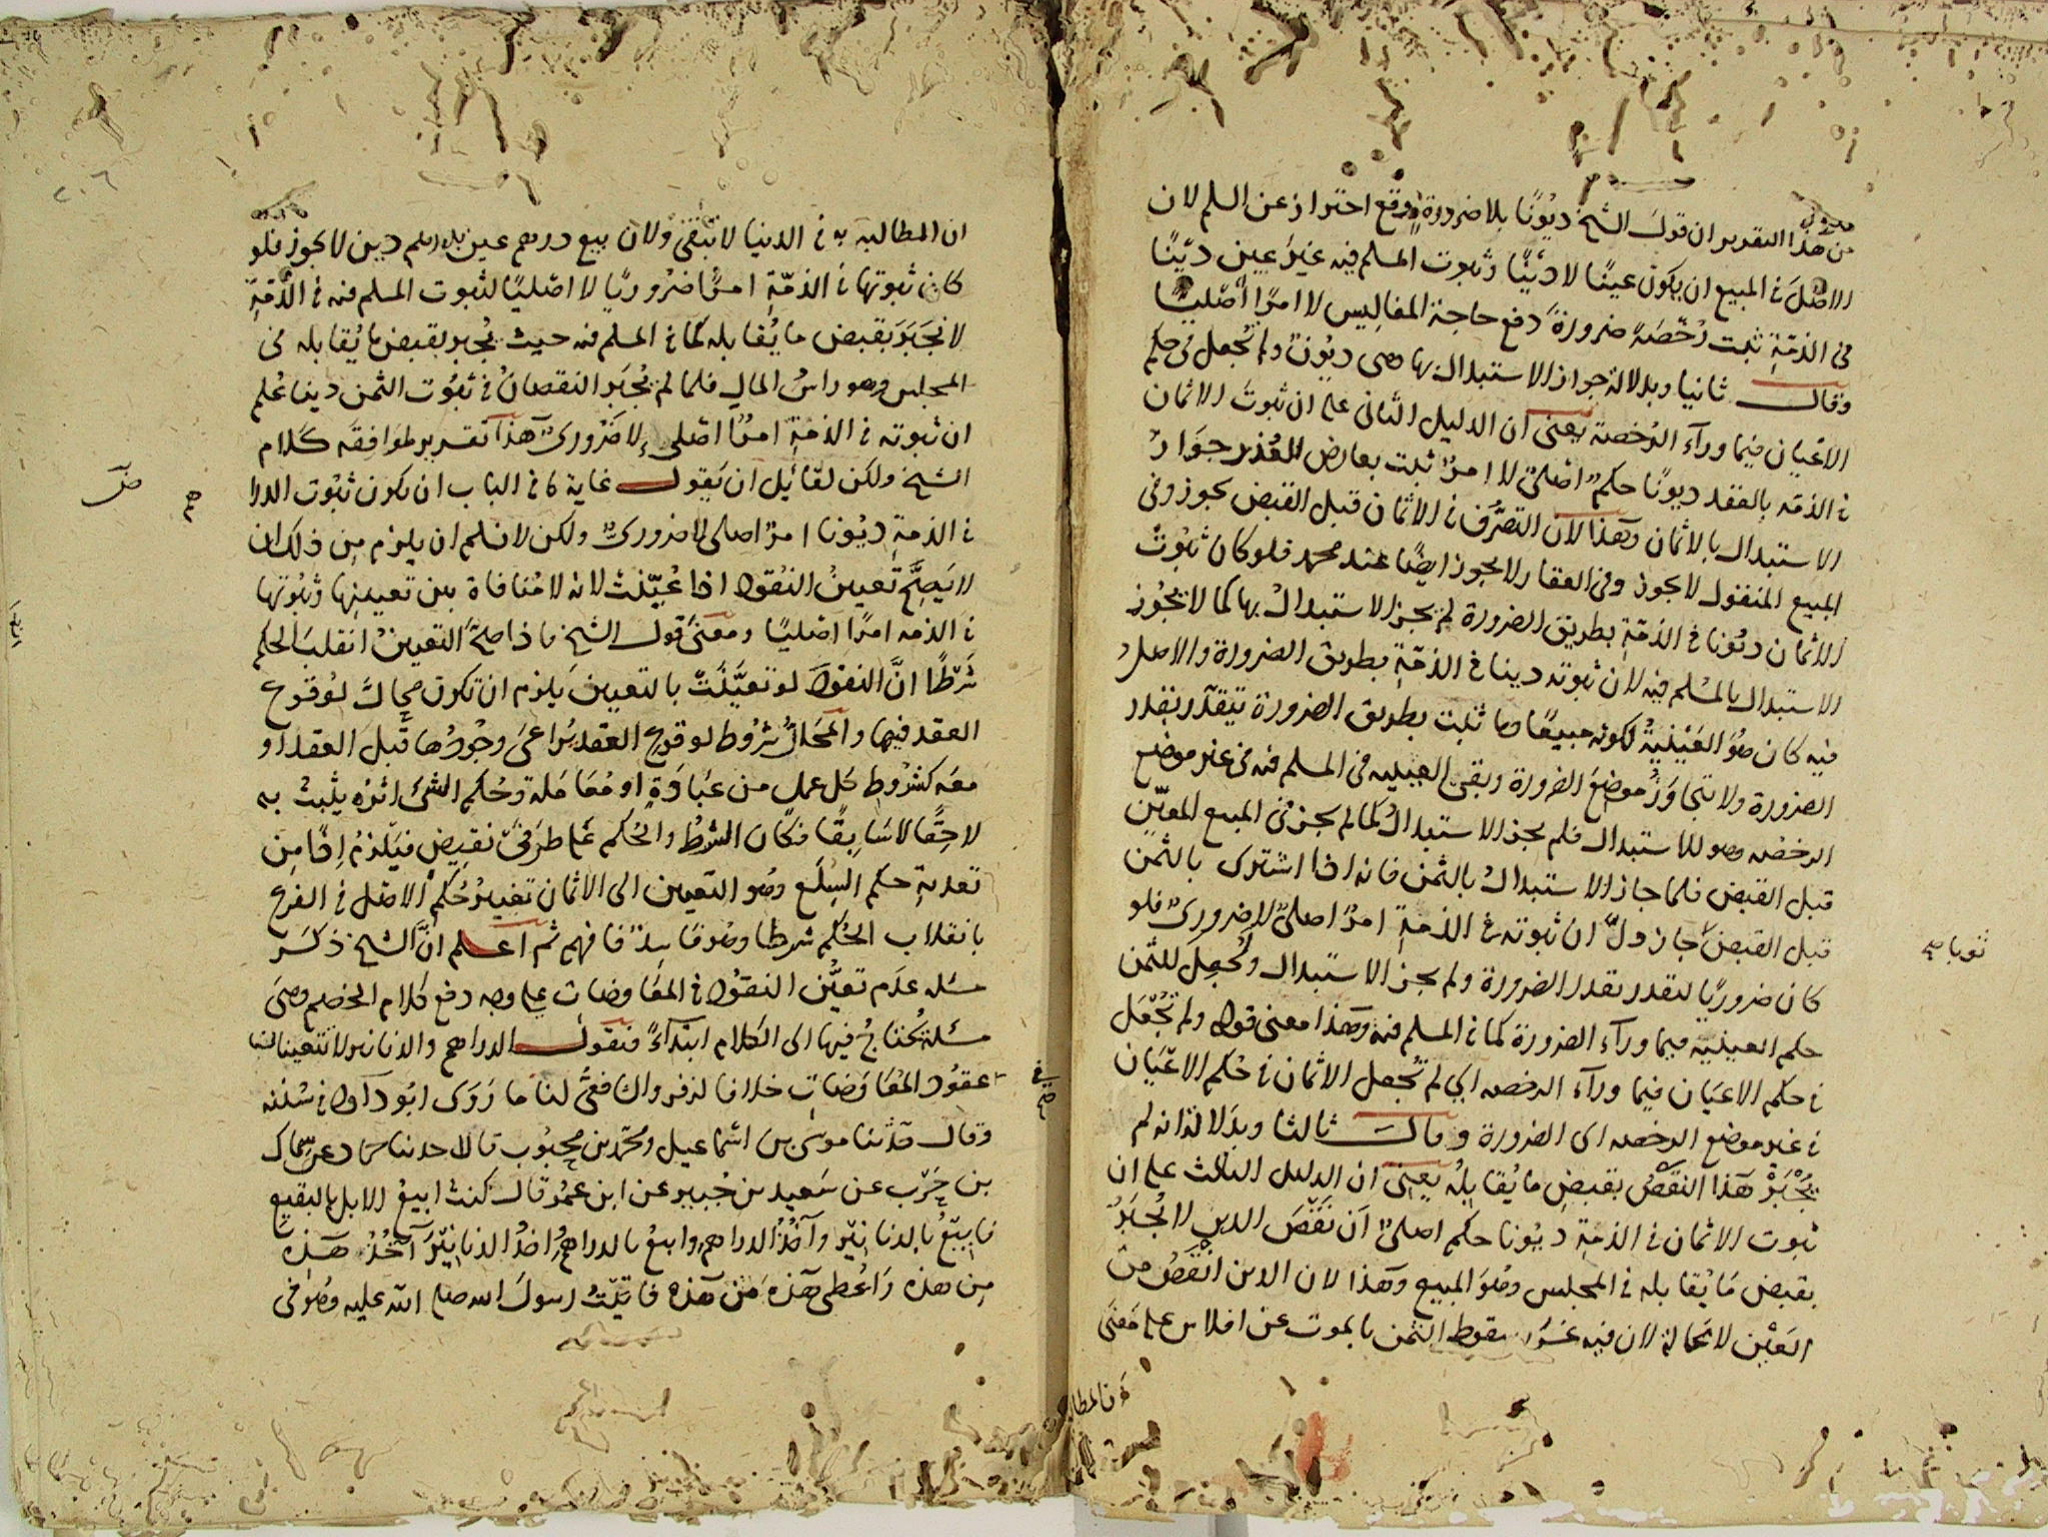 من هذا التقرير ان قول الشيخ ديونا بلا ضرورة وقع احتراز عن السلم لان
الاصل في المبيع ان يكون عينا لا دينا وثبوت المسلم فيه غير عين دينا
في الذمة ثبت رخصة ضرورة دفع حاجة المفاليس لا امرا اصليا
وقال ثانيا وبدلالة جواز الاستبدال بها وهي ديون ولم تجعل في حكم
الاعيان فيما ورآء الرخصة يعني ان الدليل الثاني على ان ثبوت الاثمان
في الذمه بالعقد ديونا حكم اصلي لا امر ثبت بعارض العذر جواز
الاستبدال بالاثمان وهذا لان التصرف في الاثمان قبل القبض يجوز وفي
المبيع المنقول لا يجوز وفي العقار لا يجوز ايضا عند محمد فلو كان ثبوت
الاثمان ديونا في الذمة بطريق الضرورة لم يجز الاستبدال بها كما لا يجوز
الاستبدال بالمسلم فيه لان ثبوته دينا في الذمة بطريق الضرورة والاصل
فيه كان هو العينية لكونه مبيعا وما ثبت بطريق الضرورة يتقدر بقدر
الضرورة ولا تتجاوز موضع الضرورة وبقي العينيه في المسلم فيه في غير موضع
الرخصه وهو للاستبدال فلم يجز الاستبدال كما لم يجز في المبيع المعين
قبل القبض فلما جاز الاستبدال بالثمن فانه اذا اشترى بالثمن
قبل القبض جاز دل ان ثبوته في الذمة امر اصلي لا ضروري فلو
كان ضروريا لتقدر بقدر الضرورة ولم يجز الاستبدال ولجعل للثمن
حكم العينيه فيما ورآء الضرورة كما في المسلم فيه وهذا معنى قوله ولم تجعل
في حكم الاعيان فيما ورآء الرخصه اي لم تجعل الاثمان في حكم الاعيان
في غير موضع الرخصه اى الضرورة وقال ثالثا وبدلالة انه لم
يجبر هذا النقص بقبض ما يقابله يعني ان الدليل الثالث على ان
ثبوت الاثمان في الذمة ديونا حكم اصلي ان نقص الدين لا يجبر
بقبض ما يقابله في المجلس وهو المبيع وهذا لان الدين انقص من
العين لا محالة لان فيه غرر سقوط الثمن بالموت عن افلاس على معنى
ثوبا صح
ان المطالبه به في الدنيا لا تبقى ولان بيع درهم عين بدرهم دين لا يجوز فلو
كان ثبوتها في الذمة امرا ضروريا لا اصليا لثبوت المسلم فيه في الذمة
لانجبر بقبض ما يقابله كما في المسلم فيه حيث يجبر بقبض ما يقابله في
المجلس وهو راس المال فلما لم يجبر النقصان في ثبوت الثمن دينا علم
ان ثبوته في الذمة امر اصلي لا ضروري هذا تقرير موافقه كلام
الشيخ ولكن لقائل ان يقول غاية ما في الباب ان يكون ثبوت الدرا
في الذمة ديونا امر اصلي لا ضروري ولكن لا نسلم ان يلزم من ذلك ان
لا يصح تعيين النقود اذا عينت لانه لا منافاة بين تعيينها وثبوتها
في الذمه امرا اصليا ومعنى قول الشيخ فاذا صح التعيين انقلب الحكم
شرطا ان النقود لو تعينت بالتعيين يلزم ان تكون محالا لوقوع
العقد فيها والمحال شروط لوقوع العقد يراعى وجودها قبل العقد او
معه كشروط كل عمل من عبادة او معاملة وحكم الشئ اثره يثبت به
لاحقا لا سابقا فكان الشرط والحكم على طرفي نقيض فيلزم اذا من
تعدية حكم السلع وهو التعيين الى الاثمان تغيير حكم الاصل في الفرع
بانقلاب الحكم شرطا وهو فاسد فافهم ثم اعلم ان الشيخ ذكر
مسئله عدم تعين النقود في المعاوضات على وجه دفع كلام الخصم وهي
مسئلة يحتاج فيها الى الكلام ابتدآء فنقول الدراهم والدنانير لا تتعينان في
عقود المعاوضات خلافا لزفر والشافعي لنا ما روى ابو داود في سننه
وقال حدثنا موسى بن اسماعيل ومحمد بن محبوب قالا حدثنا حماد عن سماك
بن حرب عن سعيد بن جبير عن ابن عمر قال كنت ابيع الابل بالبقيع
فابيع بالدنانير وآخذ الدراهم وابيع بالدراهم واخذ الدنانير آخذ هذه
من هذه واعطي هذه من هذه فاتيت رسول الله صلى الله عليه وهو في